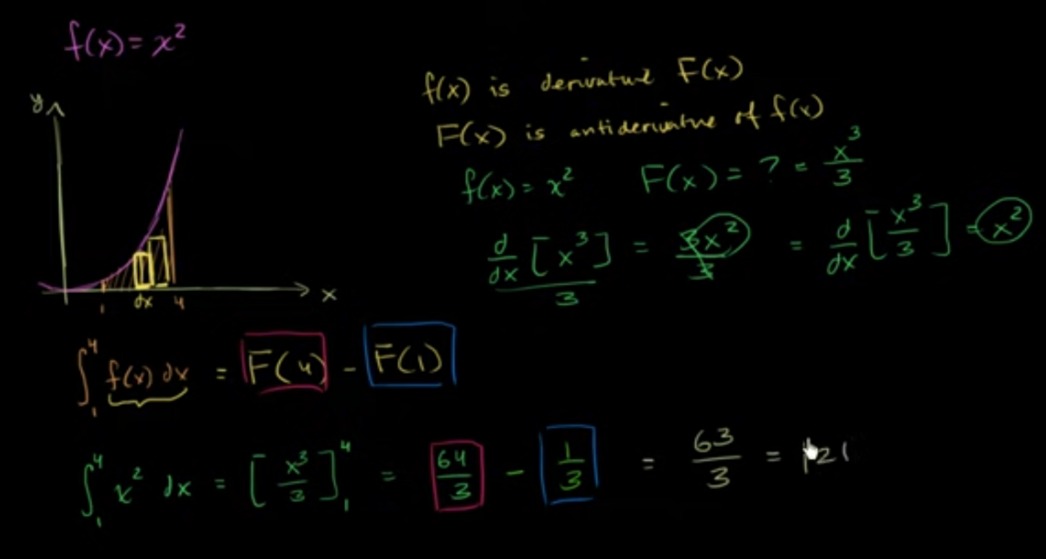 f(x) = x²
f(x) is derivative F(x)
F(x) is antiderivative of f(x)
f(x) = x² F(x) = ? = x³/3
d/dx [x³] / 3 = 3x²/3 = d/dx [x³/3] = x²
y
x
1 dx 4
∫₁⁴ f(x) dx = F(4) - F(1)
∫₁⁴ x² dx = [x³/3]₁⁴ = 64/3 - 1/3 = 63/3 = 21